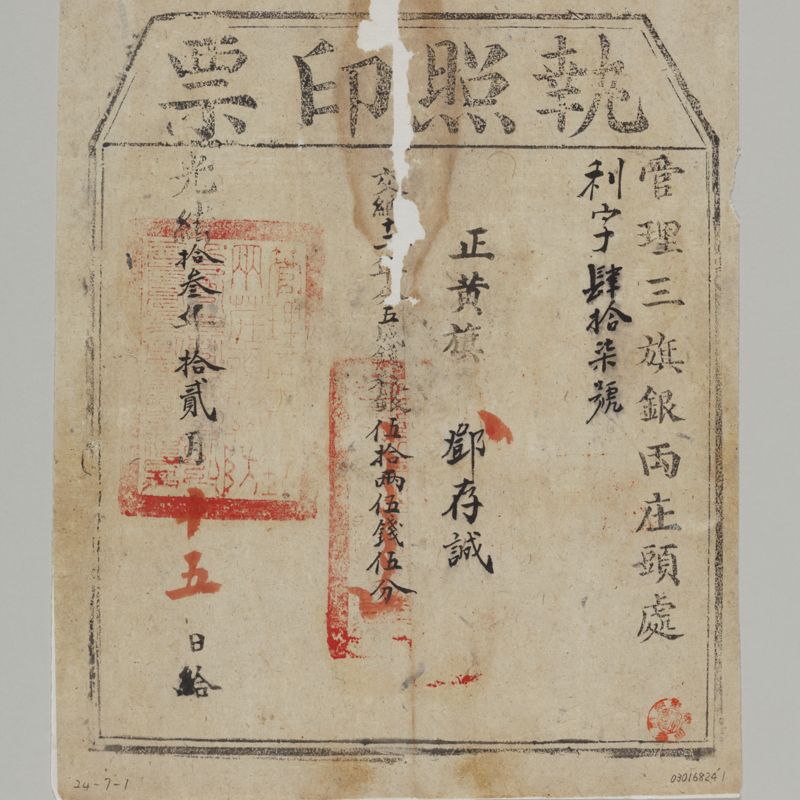 執照印票
管理三旗銀兩庄頭處
利字肆拾柒號
正黃旗 鄧存誠
交納十 年 五成錢糧銀伍拾兩伍錢伍分
光緒拾叁年拾貳月十五日給
24-7-1
030168241